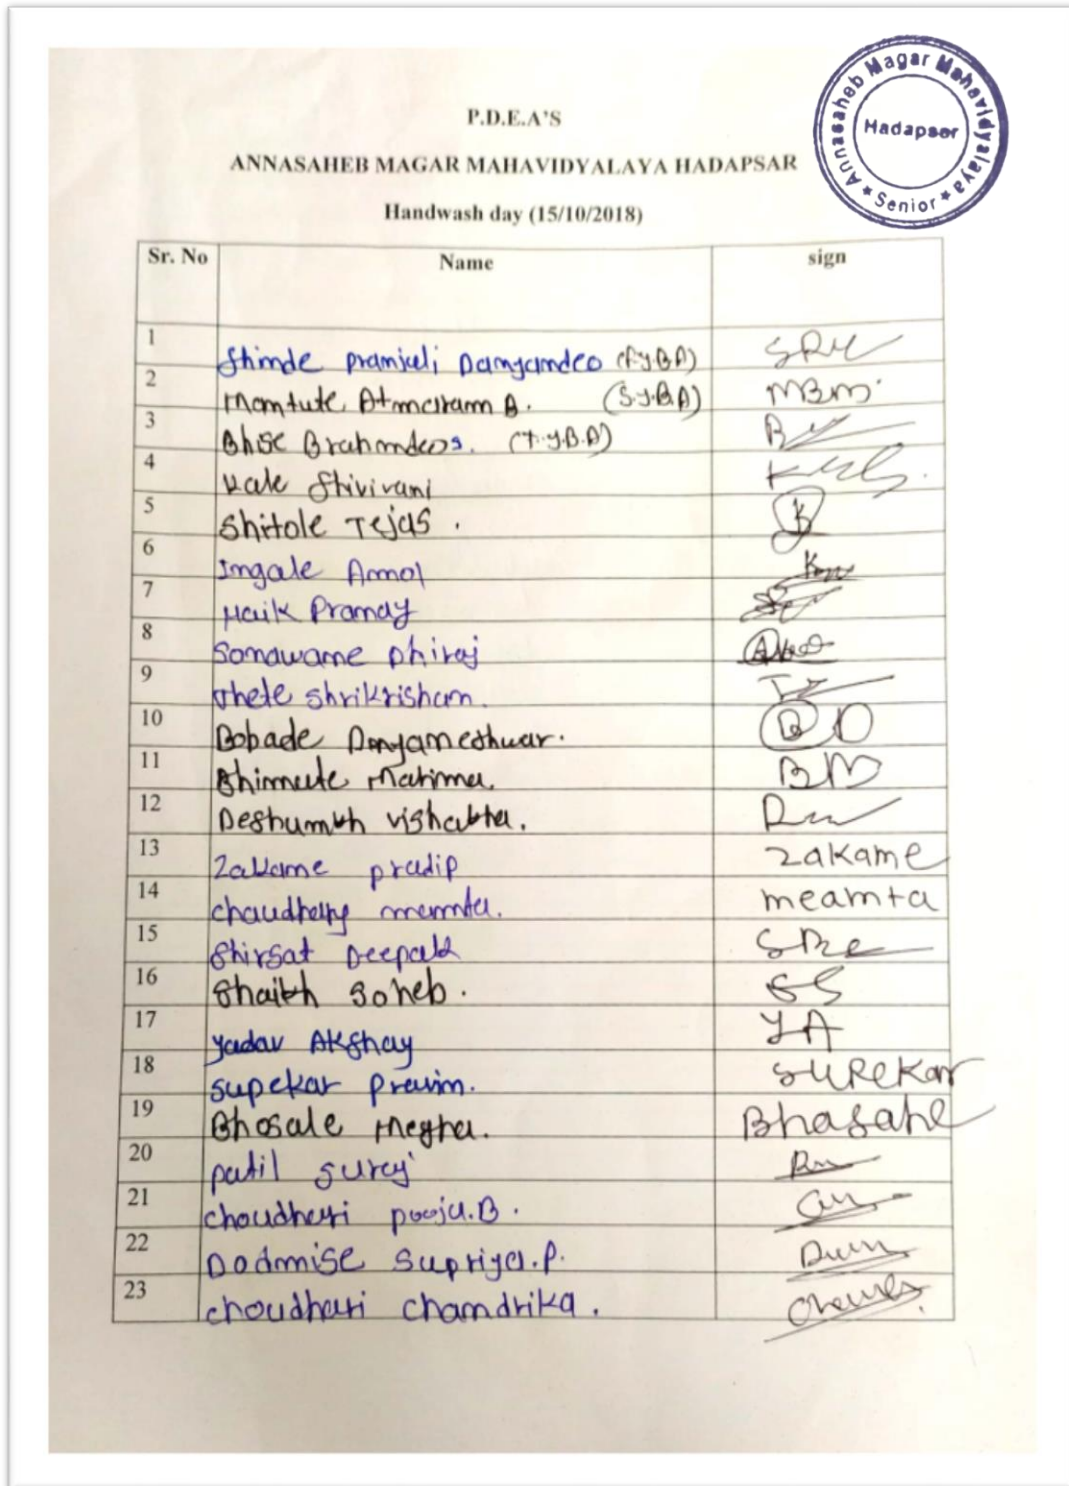 Annasaheb Magar Mahavidyalaya
Hadapsar
★ Senior ★
P.D.E.A'S
ANNASAHEB MAGAR MAHAVIDYALAYA HADAPSAR
Handwash day (15/10/2018)
Sr. No Name sign
1 Shinde pranjali Damyamdeo (F.y.B.A)
2 Mamtute Atmaram B. (S.y.B.A) MBM
3 Bhise Brahmdeo s. (T.y.B.A)
4 Kale Shivirani
5 Shitole Tejas .
6 Ingale Anmol
7 Pramay
8 Somawame Dhiraj
9 shrikrisham.
10 Bobade Dnyameshwar. B D
11 BM
12 Deshumkh vishakha.
13 Zakame pradip zakame
14 chaudhary mamta. meamta
15 Shirsat Deepak
16 Shaikh Soheb. SS
17 yadav Akshay YA
18 supekar pravim. SUREKar
19 Bhosale Megha. Bhasahe
20 patil suraj
21 choudhari pooja.B.
22 Dodmise Supriya.P.
23 choudhari chamdrika.